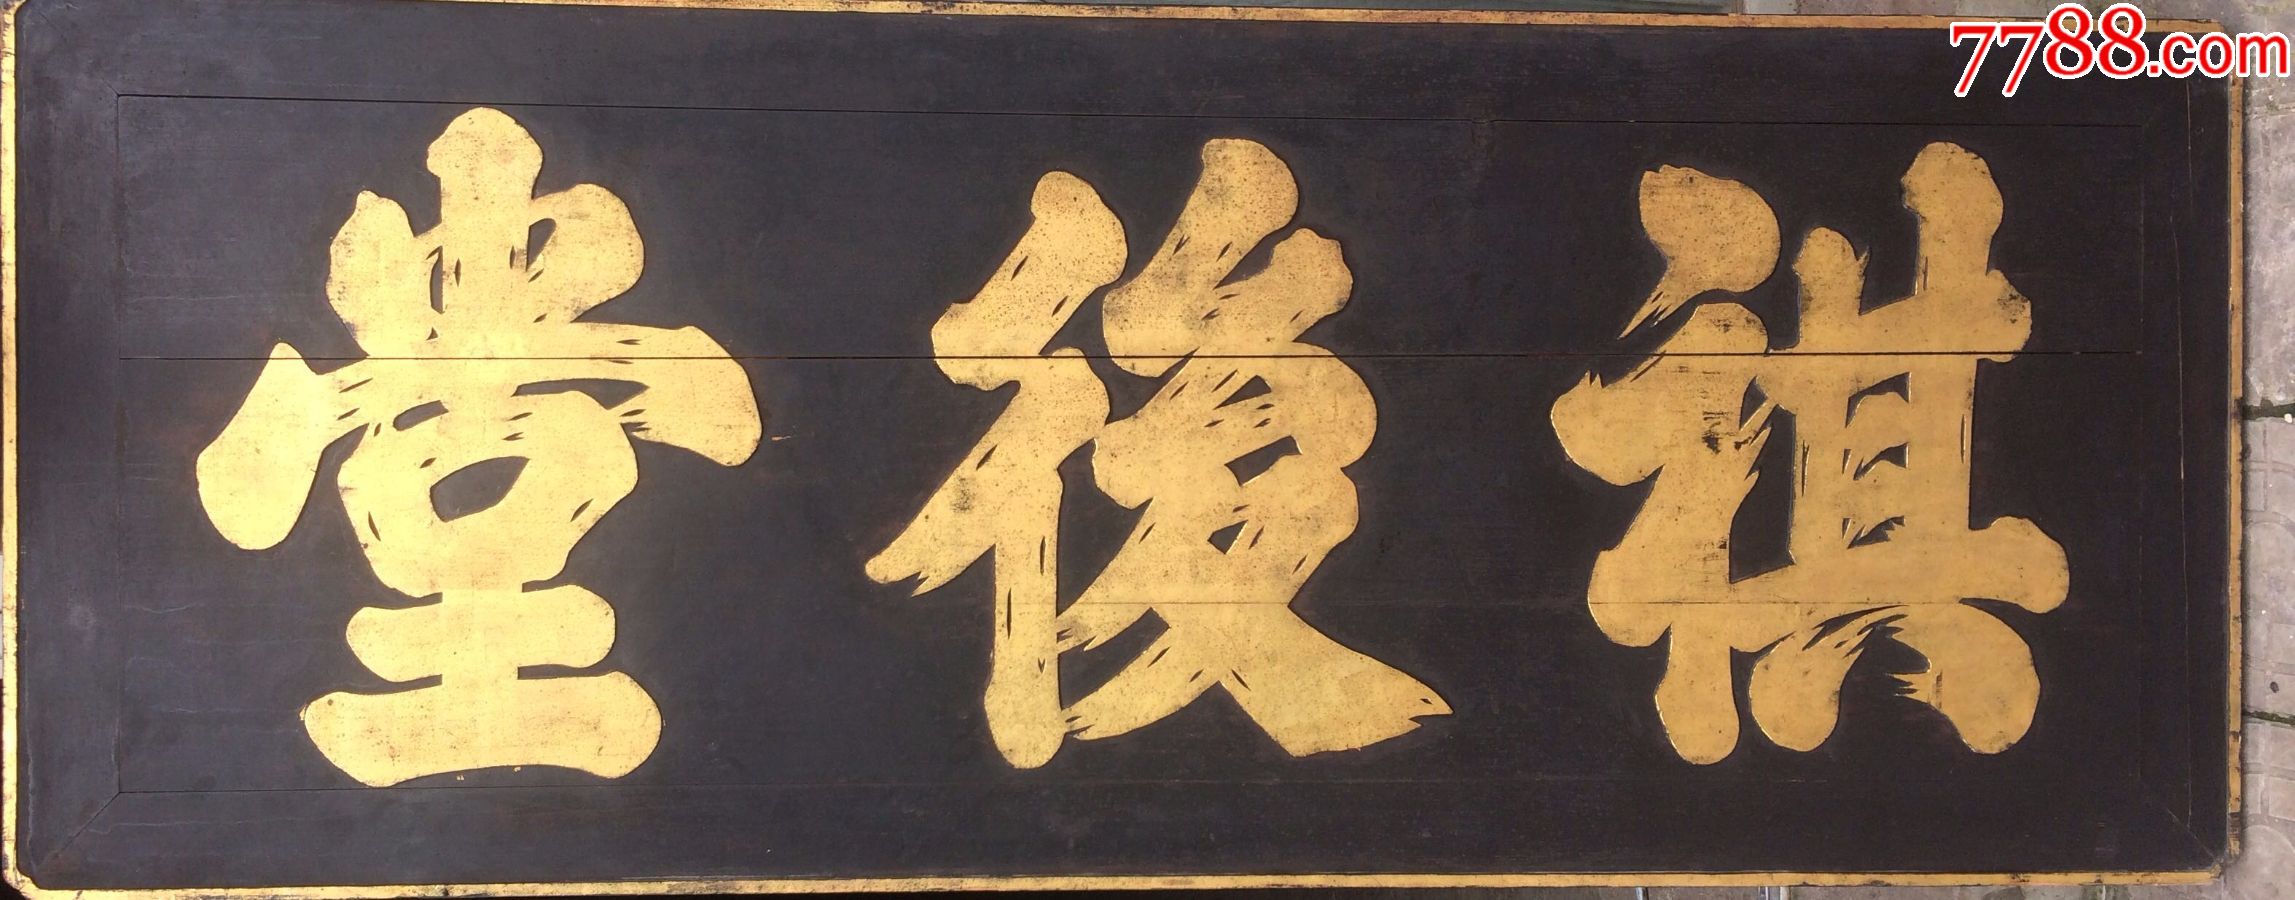 祺後堂
7788.com